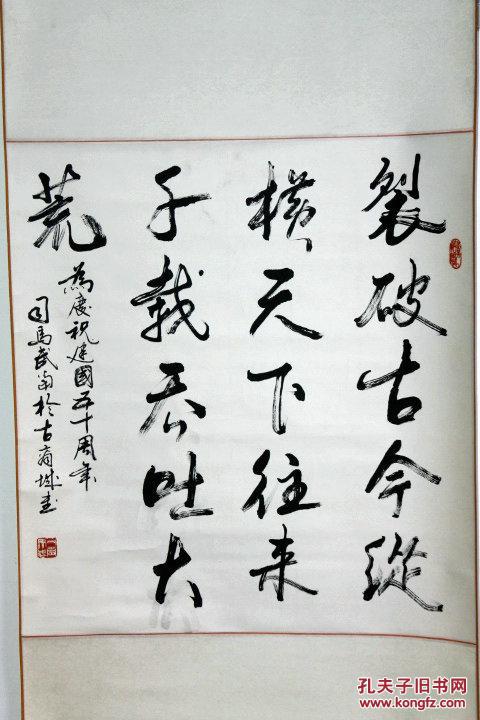 裂破古今縱
橫天下往来
千載吞吐大
荒
為慶祝建國五十周年
司馬武 於古商城書
孔夫子旧书网
www.kongfz.com